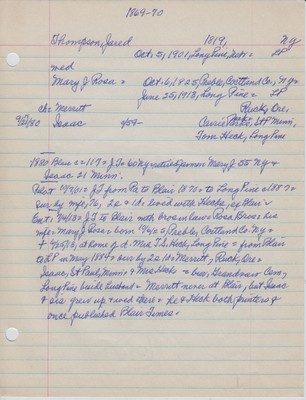 1869-70
Thompson, Jared 1819, N.Y.
Oct. 5, 1901, Long Pine, Nebr. = LP
wed
Mary J Rosa = Oct. 6, 1825, Preble, Cortland Co., N.Y. =
June 25, 1913, Long Pine = LP
ch: Merritt Ruck, Ore.
9/2/80 Isaac St Paul, Minn.
Tom Heck, Long Pine
1880 Blair c = 117 = J. To 60 NY = Mary J 55 NY &
Isaac 21 Minn.
Pilot 10/9/01 J.T from Pa to Blair 1870 = to Long Pine 1887 =
sur by wife, 76, 2s = 1d: lived with Hecks, of Blair =
Ent: J.T to Blair with bros in law = Rosa Bros = his
wife = Mary J Rosa = born 1825 Preble, Cortland Co. NY =
+ 6/25/13, at home of d. Mrs T.S. Heck, Long Pine = from Blair
to LP in May 1887 = sur by 2s 1d = Merritt, Ruck, Ore =
Isaac, St Paul, Minn; & Mrs Hecks = bur, Grandview Cem,
Long Pine beside husband = Merritt never at Blair, but Isaac
& sis grew up & wed there = he & Heck both printers &
once published Blair Times.